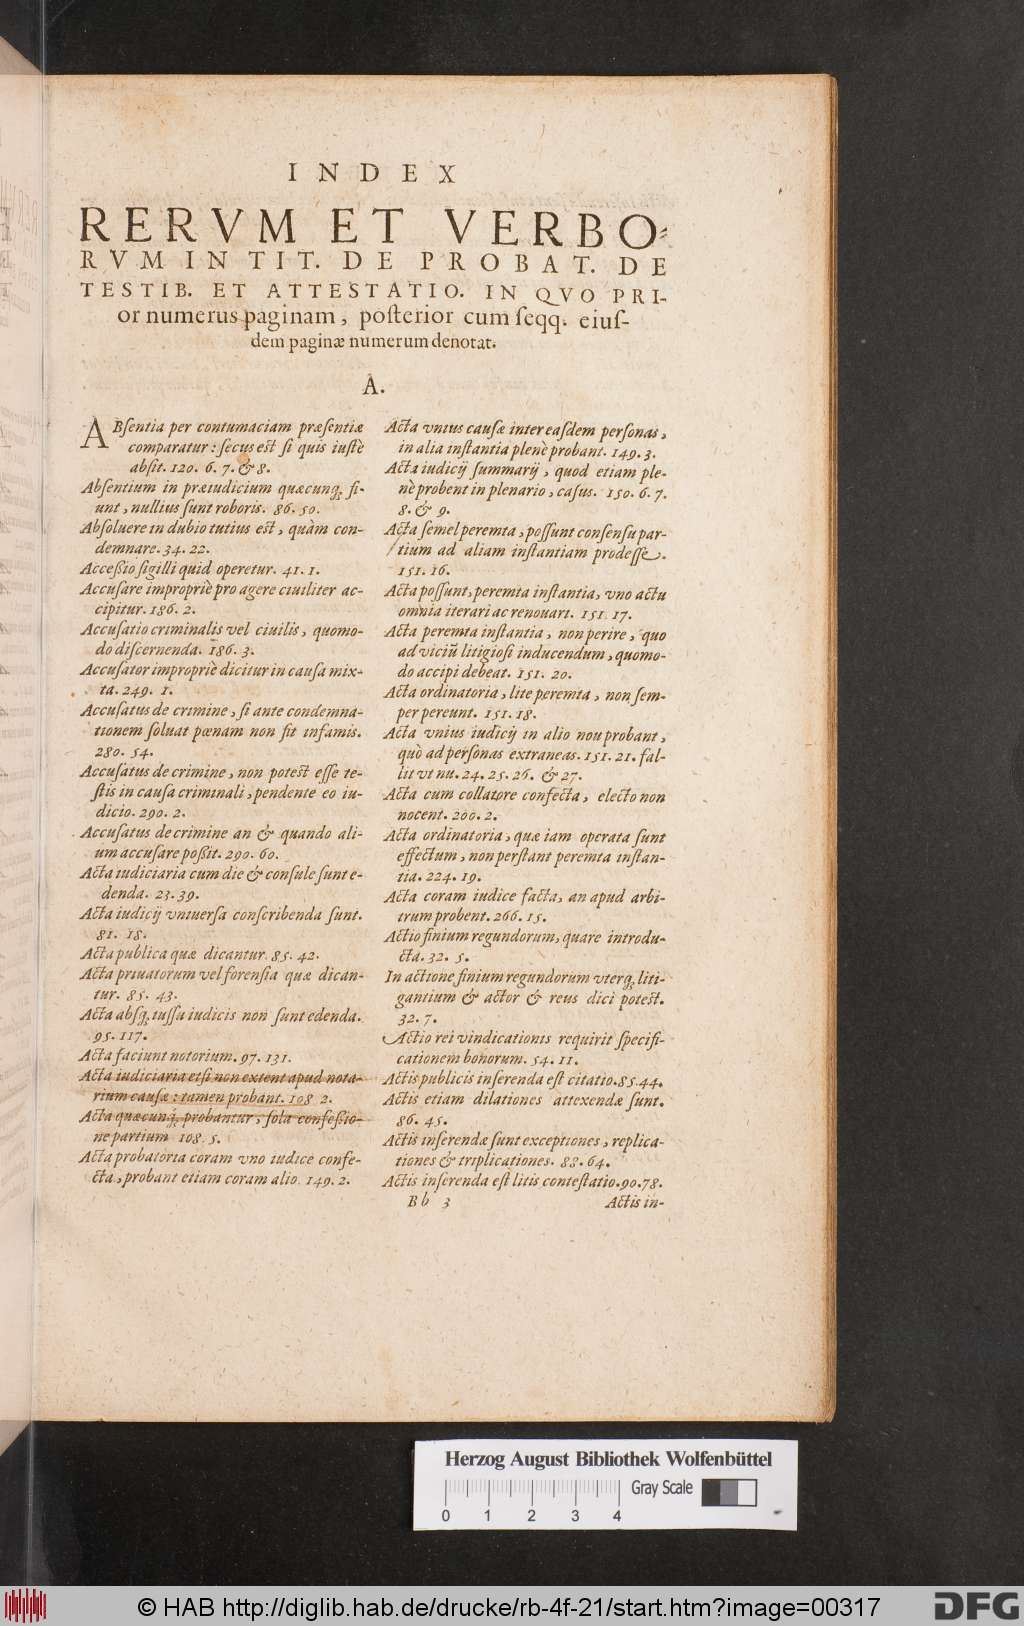 INDEX
RERVM ET VERBO-
RVM IN TIT. DE PROBAT. DE
TESTIB. ET ATTESTATIO. IN QVO PRI-
or numerus paginam, posterior cum seqq. eius-
dem paginæ numerum denotat.
A.
ABsentia per contumaciam præsentiæ
comparatur: secus est si quis iustè
absit. 120. 6. 7. & 8.
Absentium in præiudicium quæcunq, fi-
unt, nullius sunt roboris. 86. 50.
Absoluere in dubio tutius est, quàm con-
demnare. 34. 22.
Accessio sigilli quid operetur. 41. 1.
Accusare impropriè pro agere ciuiliter ac-
cipitur. 186. 2.
Accusatio criminalis vel ciuilis, quomo-
do discernenda. 186. 3.
Accusator impropriè dicitur in causa mix-
ta. 249. 1.
Accusatus de crimine, si ante condemna-
tionem soluat pœnam non fit infamis.
280. 54.
Accusatus de crimine, non potest esse te-
stis in causa criminali, pendente eo iu-
dicio. 290. 2.
Accusatus de crimine an & quando ali-
um accusare possit. 290. 60.
Acta iudiciaria cum die & consule sunt e-
denda. 23. 39.
Acta iudicij vniuersa conscribenda sunt.
81. 18.
Acta publica quæ dicantur. 85. 42.
Acta priuatorum vel forensia quæ dican-
tur. 85. 43.
Acta absq, iussu iudicis non sunt edenda.
95. 117.
Acta faciunt notorium. 97. 131.
Acta iudiciaria etsi non extent apud nota-
rium causæ: tamen probant. 108 2.
Acta quæcunq, probantur, sola confessio-
ne partium 108. 5.
Acta probatoria coram vno iudice confe-
cta, probant etiam coram alio. 149. 2.
Acta vnius causæ inter easdem personas,
in alia instantia plenè probant. 149. 3.
Acta iudicij summarij, quod etiam ple-
nè probent in plenario, casus. 150. 6. 7.
8. & 9.
Acta semel peremta, possunt consensu par-
tium ad aliam instantiam prodesse.
151. 16.
Acta possunt, peremta instantia, vno actu
omnia iterari ac renouari. 151. 17.
Acta peremta instantia, non perire, quo
ad viciũ litigiosi inducendum, quomo-
do accipi debeat. 151. 20.
Acta ordinatoria, lite peremta, non sem-
per pereunt. 151. 18.
Acta vnius iudicij in alio non probant,
quò ad personas extraneas. 151. 21. fal-
lit vt nu. 24. 25. 26. & 27.
Acta cum collatore confecta, electo non
nocent. 200. 2.
Acta ordinatoria, quæ iam operata sunt
effectum, non perstant peremta instan-
tia. 224. 19.
Acta coram iudice facta, an apud arbi-
trum probent. 266. 15.
Actio finium regundorum, quare introdu-
cta. 32. 5.
In actione finium regundorum vterq, liti-
gantium & actor & reus dici potest.
32. 7.
Actio rei vindicationis requirit specifi-
cationem bonorum. 54. 11.
Actis publicis inserenda est citatio. 85. 44.
Actis etiam dilationes attexendæ sunt.
86. 45.
Actis inserendæ sunt exceptiones, replica-
tiones & triplicationes. 88. 64.
Actis inserenda est litis contestatio. 90. 78.
Bb 3 Actis in-
Herzog August Bibliothek Wolfenbüttel
Gray Scale
0 1 2 3 4
© HAB http://diglib.hab.de/drucke/rb-4f-21/start.htm?image=00317
DFG